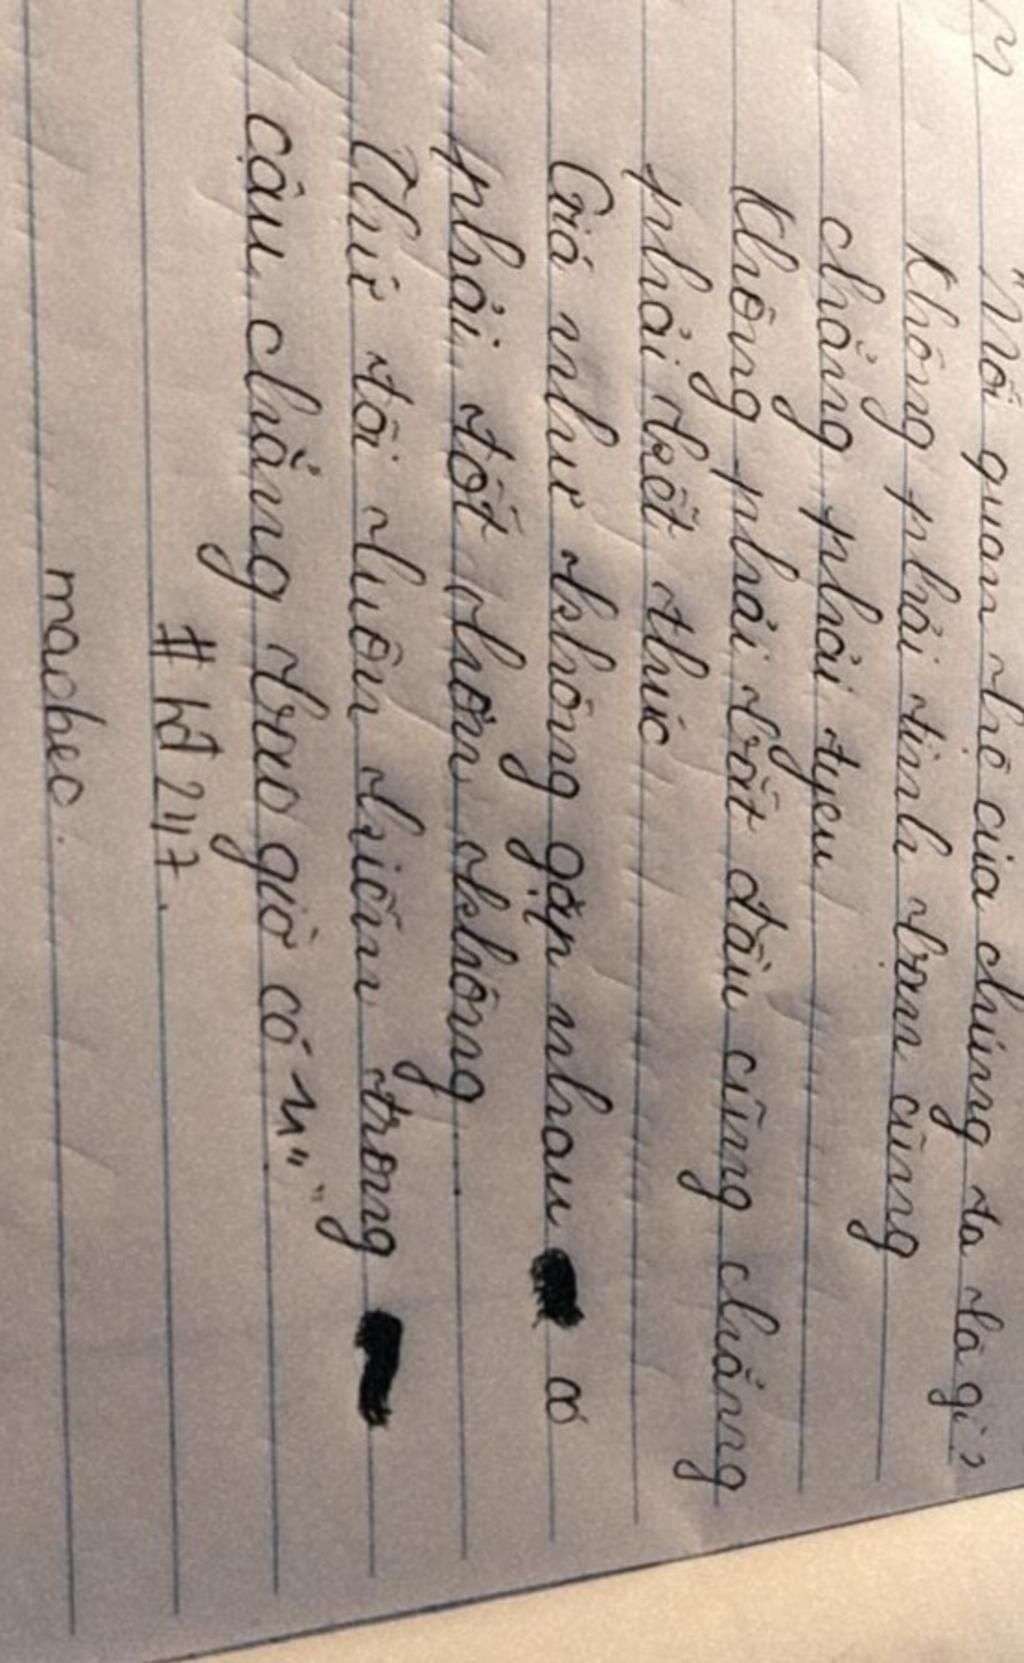 "Mối quan hệ của chúng ta là gì?
Không phải tình bạn cũng
chẳng phải tyeu
Không phải bắt đầu cũng chẳng
phải kết thúc
Giá như không gặp nhau có
phải tốt hơn không.
Thứ tôi luôn kiếm trong
cậu chẳng bao giờ có"
# hđ 247.
maobeo.